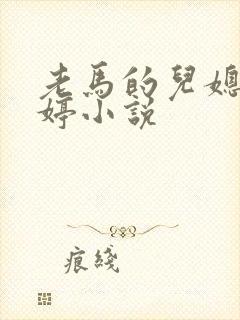 老馬的兒媳
婷小說
痕綫